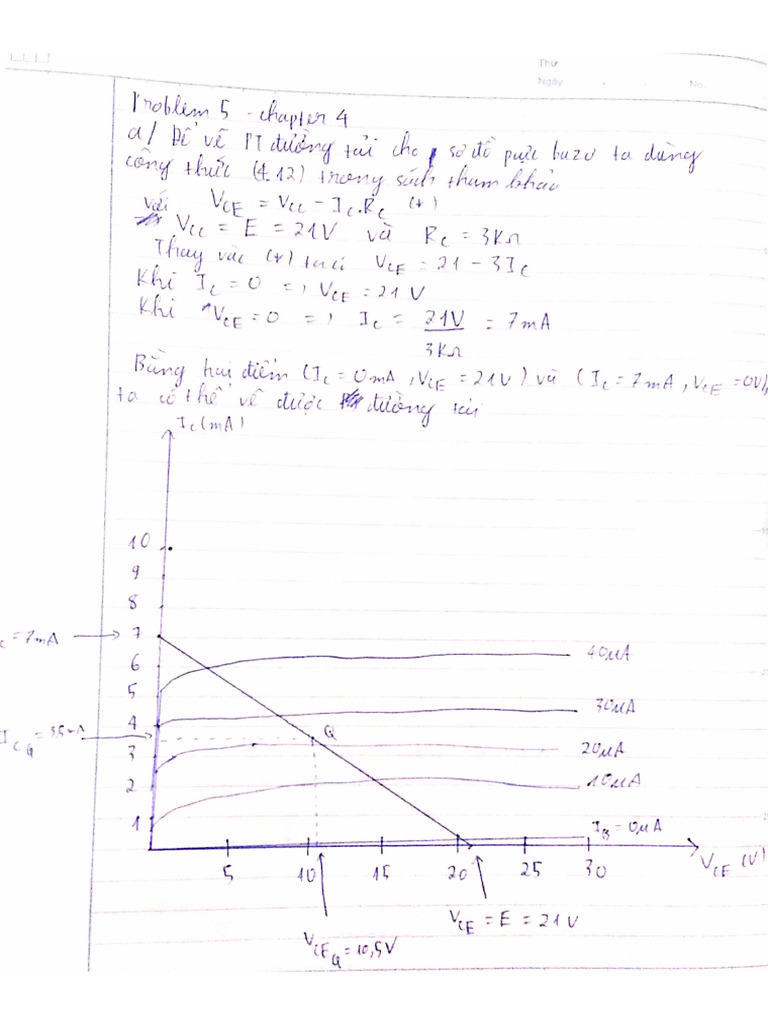 Thứ
Ngày No.
Problem 5 - chapter 4
a/ Để vẽ PT đường tải cho sơ đồ pực bazơ ta dùng
công thức (4.12) trong sách tham khảo
với VCE = VCC - IC.RC (*)
VCC = E = 21V và RC = 3KΩ
Thay vào (*) ta có VCE = 21 - 3IC
Khi IC = 0 => VCE = 21V
Khi VCE = 0 => IC = 21V / 3KΩ = 7mA
Bằng hai điểm (IC = 0mA, VCE = 21V) và (IC = 7mA, VCE = 0V),
ta có thể vẽ được đường tải
IC(mA)
10
9
8
C = 7mA 7
6 40μA
5
4 30μA
ICQ = 3,5mA Q
3 20μA
2 10μA
1 IB = 0μA
5 10 15 20 25 30 VCE (V)
VCE = E = 21V
VCEQ = 10,5V